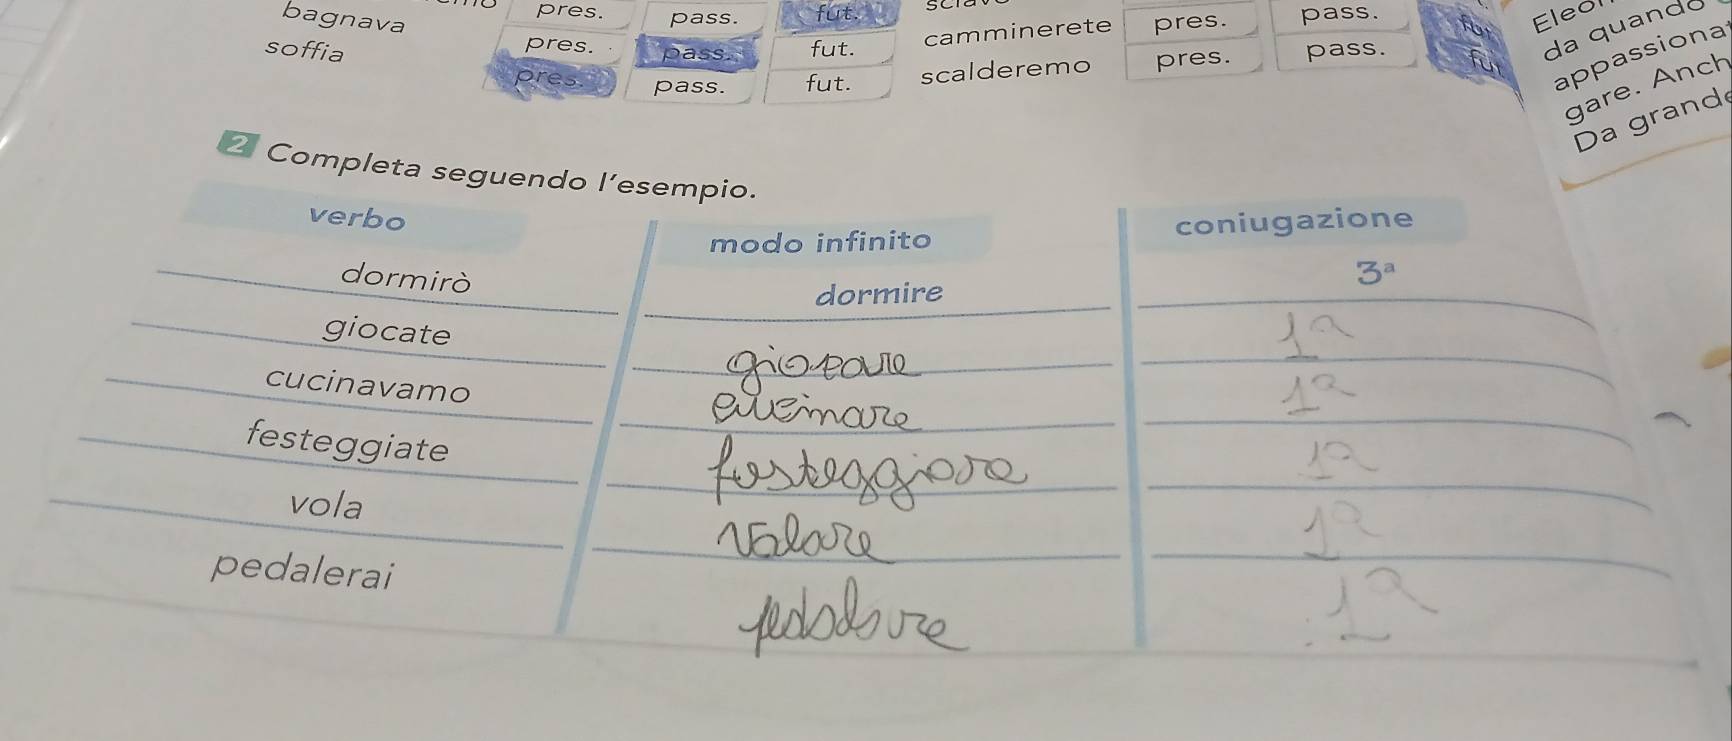 pres. pass. fut.
bagnava pres. pass. fut. camminerete pres. pass. fut
soffia pres. pass. fut. scalderemo pres. pass. fut
da quando
appassiona
gare. Anch
Da grande
2 Completa seguendo l'esempio.
verbo modo infinito coniugazione
dormirò dormire 3ª
giocate giocare 1ª
cucinavamo cucinare 1ª
festeggiate festeggiare 1ª
vola volare 1ª
pedalerai pedalare 1ª